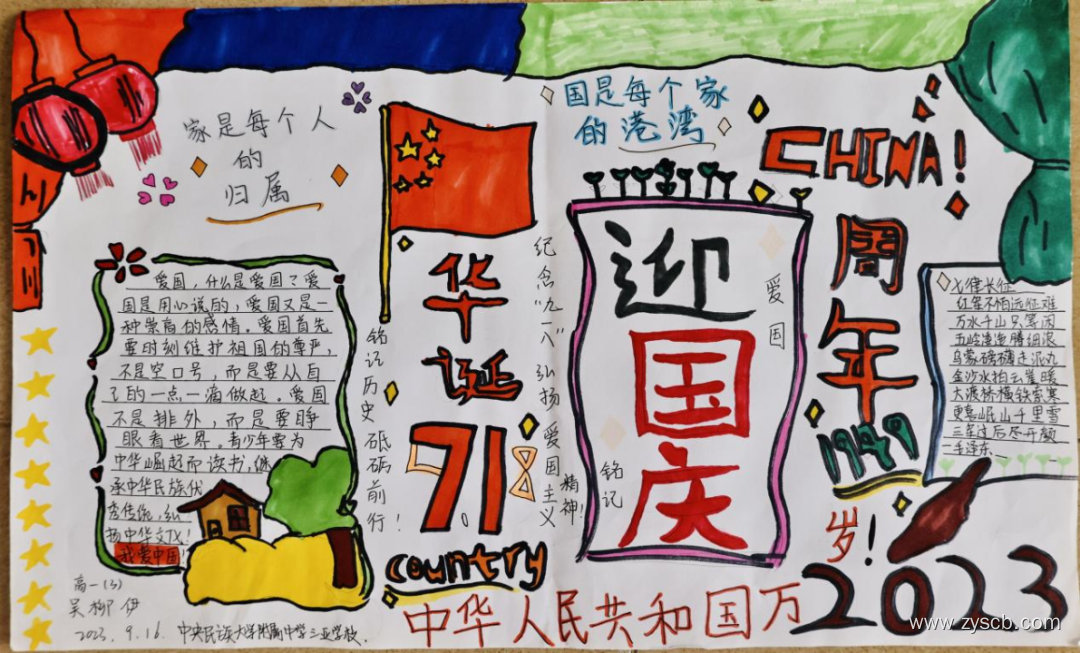 家是每个人
的
归属
国是每个家
的港湾
CHINA!
爱国，什么是爱国？爱
国是用心说的；爱国又是一
种崇高的感情。爱国首先
要时刻维护祖国的尊严，
不是空口号，而是要从自
己的一点一滴做起。爱国
不是排外，而是要睁
眼看世界。青少年要为
中华崛起而读书，继
承中华民族优
秀传统，弘
扬中华文化！
我爱中国！
铭记历史 砥砺前行！
华诞
71
country
纪念"九一八"弘扬爱国主义
精神！
9.18
迎国庆
爱国
铭记
周年
1949
七律长征
红军不怕远征难
万水千山只等闲
五岭逶迤腾细浪
乌蒙磅礴走泥丸
金沙水拍云崖暖
大渡桥横铁索寒
更喜岷山千里雪
三军过后尽开颜
毛泽东
中华人民共和国万
岁！
2023
高一(3)
吴柳伊
2023.9.16. 中央民族大学附属中学三亚学校.
www.zyscb.com